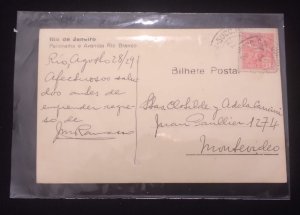 Rio de Janeiro
Panorama e Avenida Rio Branco
Rio, Agosto 28/29
Afectuosos salu
dos antes de
emprender regre
so de
Bilhete Postal
Stas. Clotilde y Adela
Juan Paullier 1274
Montevideo